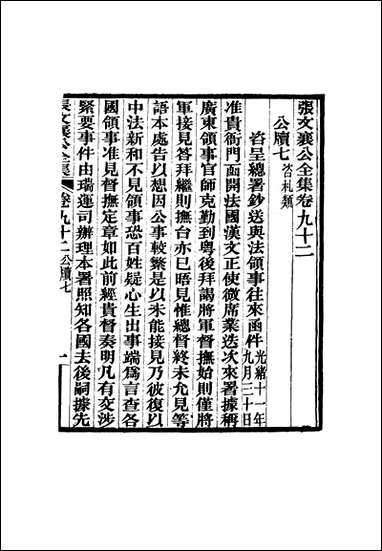 張文襄公全集卷九十二
公牘七 咨札類
咨呈總署鈔送與法領事往來函件 光緒十一年九月三十日
准貴衙門函開法國漢文正使微席業迭次來署據稱
廣東領事官師克勤到粵後拜謁將軍督撫始則僅將
軍接見答拜繼則撫台亦已晤見惟總督終未允見等
語本處告以想因公事較繁是以未能接見乃彼復以
中法新和不見領事恐百姓疑心生出事端為言查各
國領事准見督撫定章如此前經貴督奏明凡有交涉
緊要事件由瑞運司辦理本署照知各國去後嗣據先
張文襄公全集 卷九十二 公牘七 一